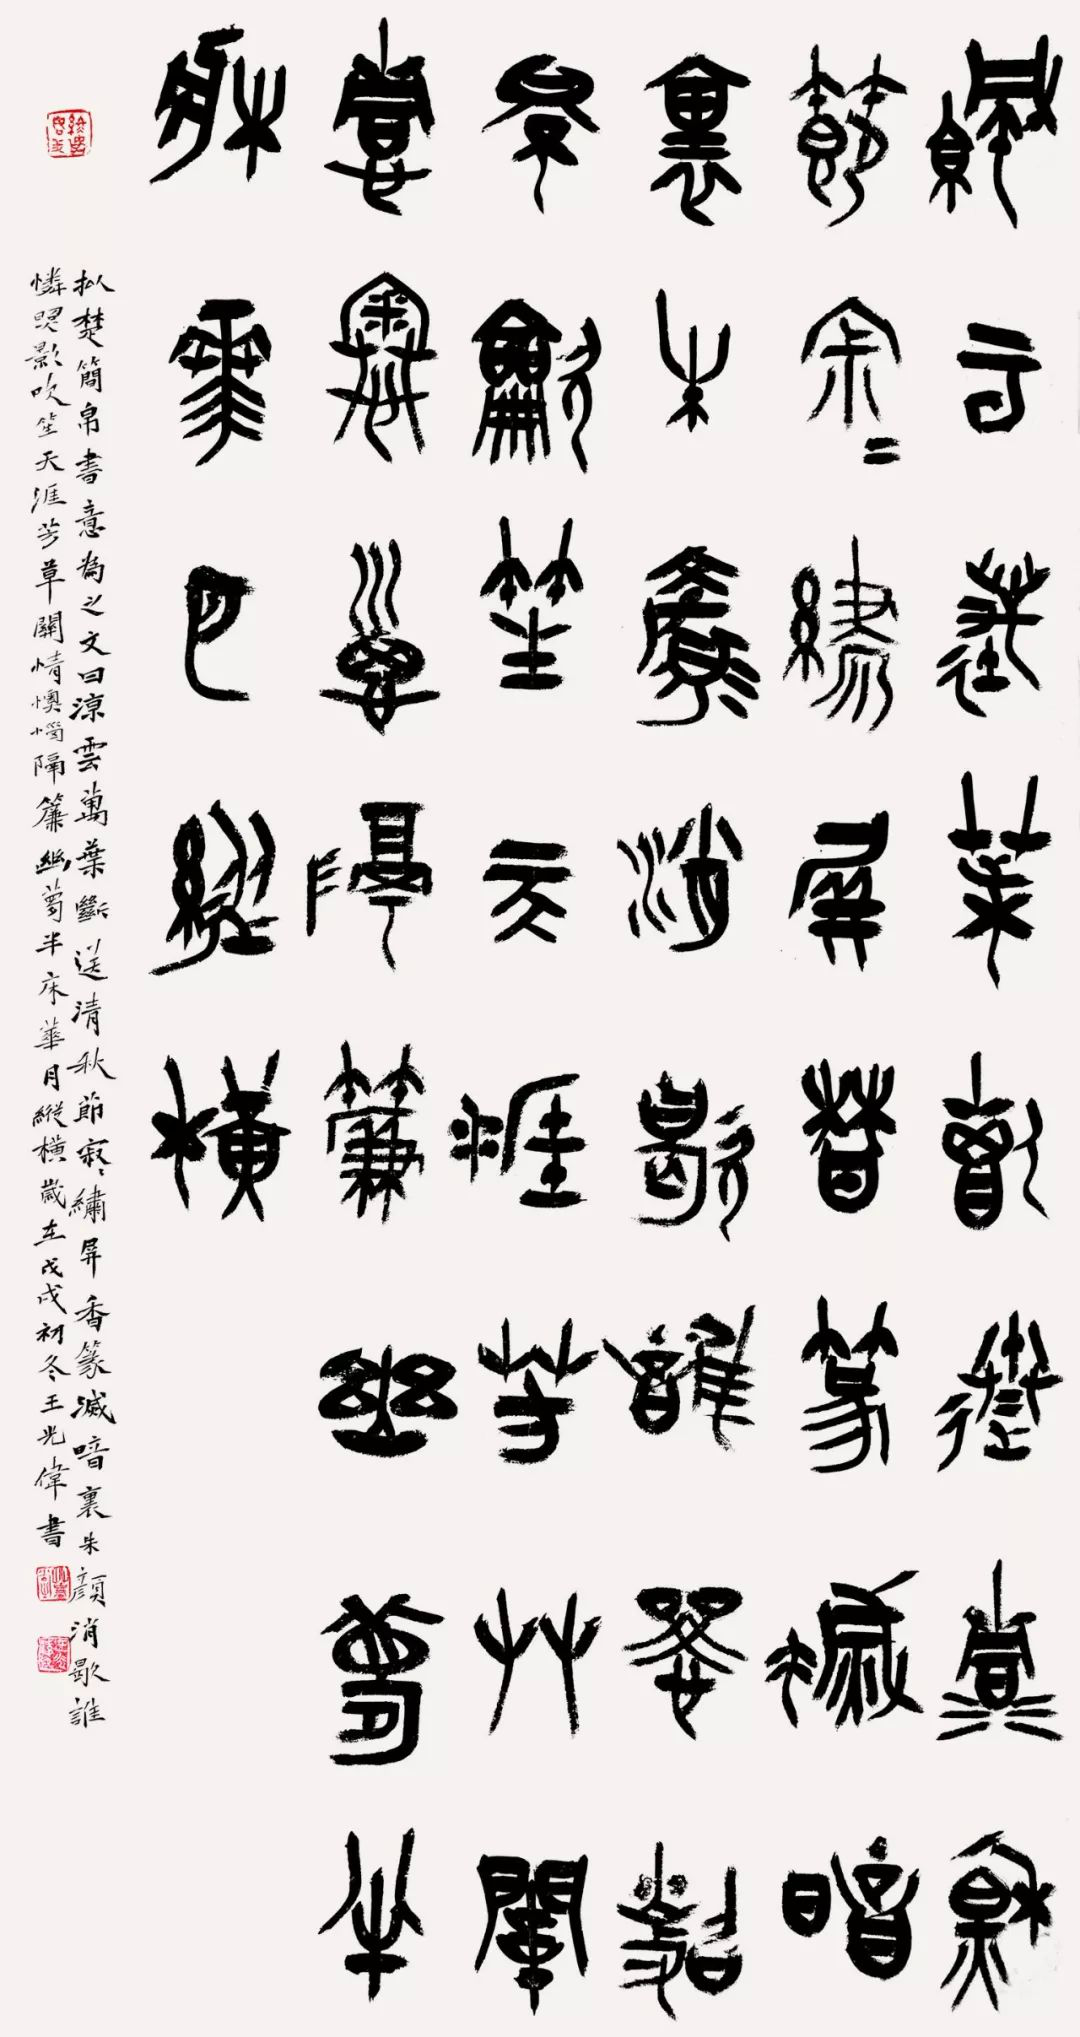 涼云萬葉斷送清秋
節寂二繡屏香篆滅暗
裏朱顏消歇誰憐照
影吹笙天涯芳草關
情懊惱隔簾幽夢半
床華月縱橫
拟楚簡帛書意為之文曰涼雲萬葉斷送清秋節寂〻繡屏香篆滅暗裏朱顏消歇誰
憐照影吹笙天涯芳草關情懊惱隔簾幽夢半床華月縱橫歲在戊戌初冬王光偉書